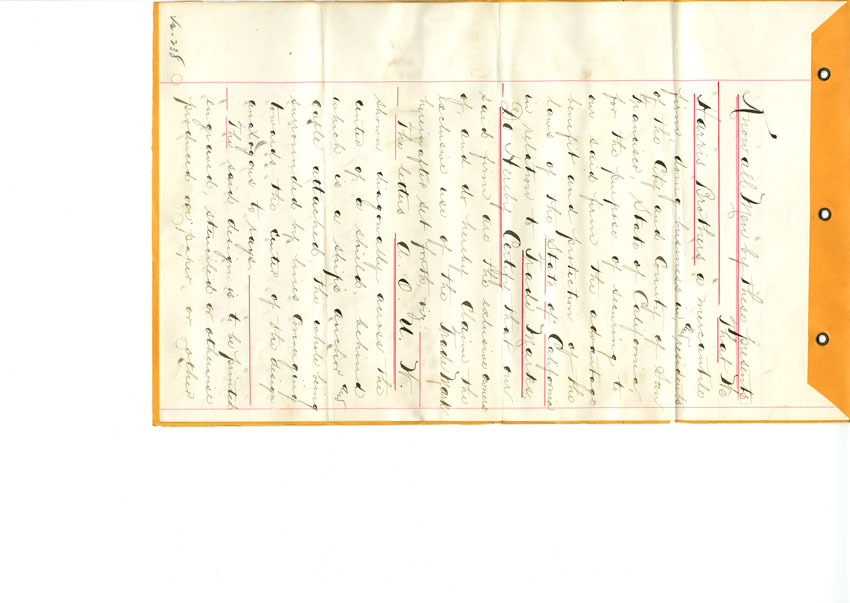 Know all Men by these presents:
That We
Harris Brothers a mercantile
firm doing business in
of the City and County of San
Francisco, State of California
for the purpose of securing to
our said firm the advantage
benefit and protection of the
laws of the State of California
in relation to Trade Marks
Do Hereby Certify that our
said firm are the exclusive owners
of and do hereby Claim the
exclusive use of the Trade Mark
hereinafter set forth, viz,
The letters A. O. U. W.
shown diagonally across the
center of a shield behind
which is a ships anchor and
cable attached. The whole being
surrounded by lines Converging
towards the center of the design
analogous to rays.
The said design is to be printed
engraved, stenciled or otherwise
produced on paper or other
No. 238